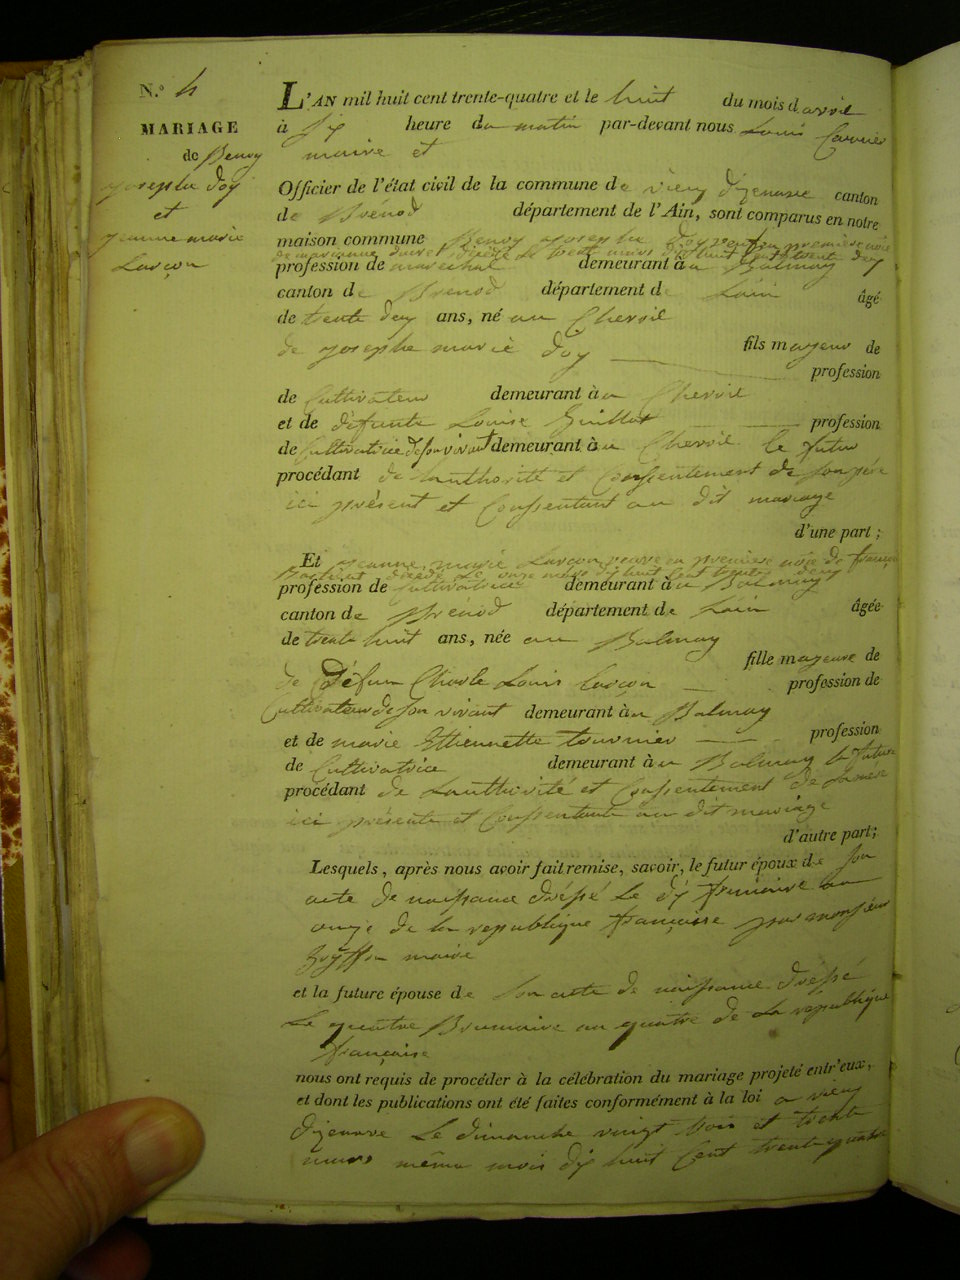 N.º 4
MARIAGE
de Benoy
joseph doy
et
jeanne marie
Larçon
L'AN mil huit cent trente-quatre et le huit du mois d avril
à six heure du matin par-devant nous Louis Carrier
maire et
Officier de l'état civil de la commune de vieu dizenave canton
de Brénod département de l'Ain, sont comparus en notre
maison commune Benoy joseph doy veuf en première noce
de marianne décédée le trente mars mil huit cent trente deux
profession de marechal demeurant à u Balmay
canton de Brenod département de Lain âgé
de trente deux ans, né au Chevril
de josephe marie doy fils majeur de
profession
de Cultivateur demeurant à u Chevril
et de défunte Louise Guillot profession
de Cultivatrice de son vivant demeurant à u Chevril le futur
procédant de lauthorité et Consentement de son père
ici présent et Consentant au dit mariage
d'une part ;
Et jeanne marie Larçon veuve en première noce de françois
décédé le onze mars mil huit cent trente deux
profession de Cultivatrice demeurant à u Balmay
canton de Brenod département de Lain âgée
de trente huit ans, née au Balmay
fille majeure de
de Défun Charle Louis Larçon profession de
Cultivateur de son vivant demeurant à u Balmay
et de marie Ethiennette tournier profession
de Cultivatrice demeurant à u Balmay la future
procédant de Lauthorité et Consentement de sa mère
ici présente et Consentante au dit mariage
d'autre part ;
Lesquels, après nous avoir fait remise, savoir, le futur époux de son
acte de naissance dréssé Le dix frimaire an
onze de la republique française par monsieur
maire
et la future épouse de son acte de naissance dréssé
Le quatre Brumaire an quatre de La republique
française
nous ont requis de procéder à la célébration du mariage projeté entr'eux,
et dont les publications ont été faites conformément à la loi a vieu
dizenave Le dimanche vingt trois et trente
mars même mois dix huit Cent trente quatre